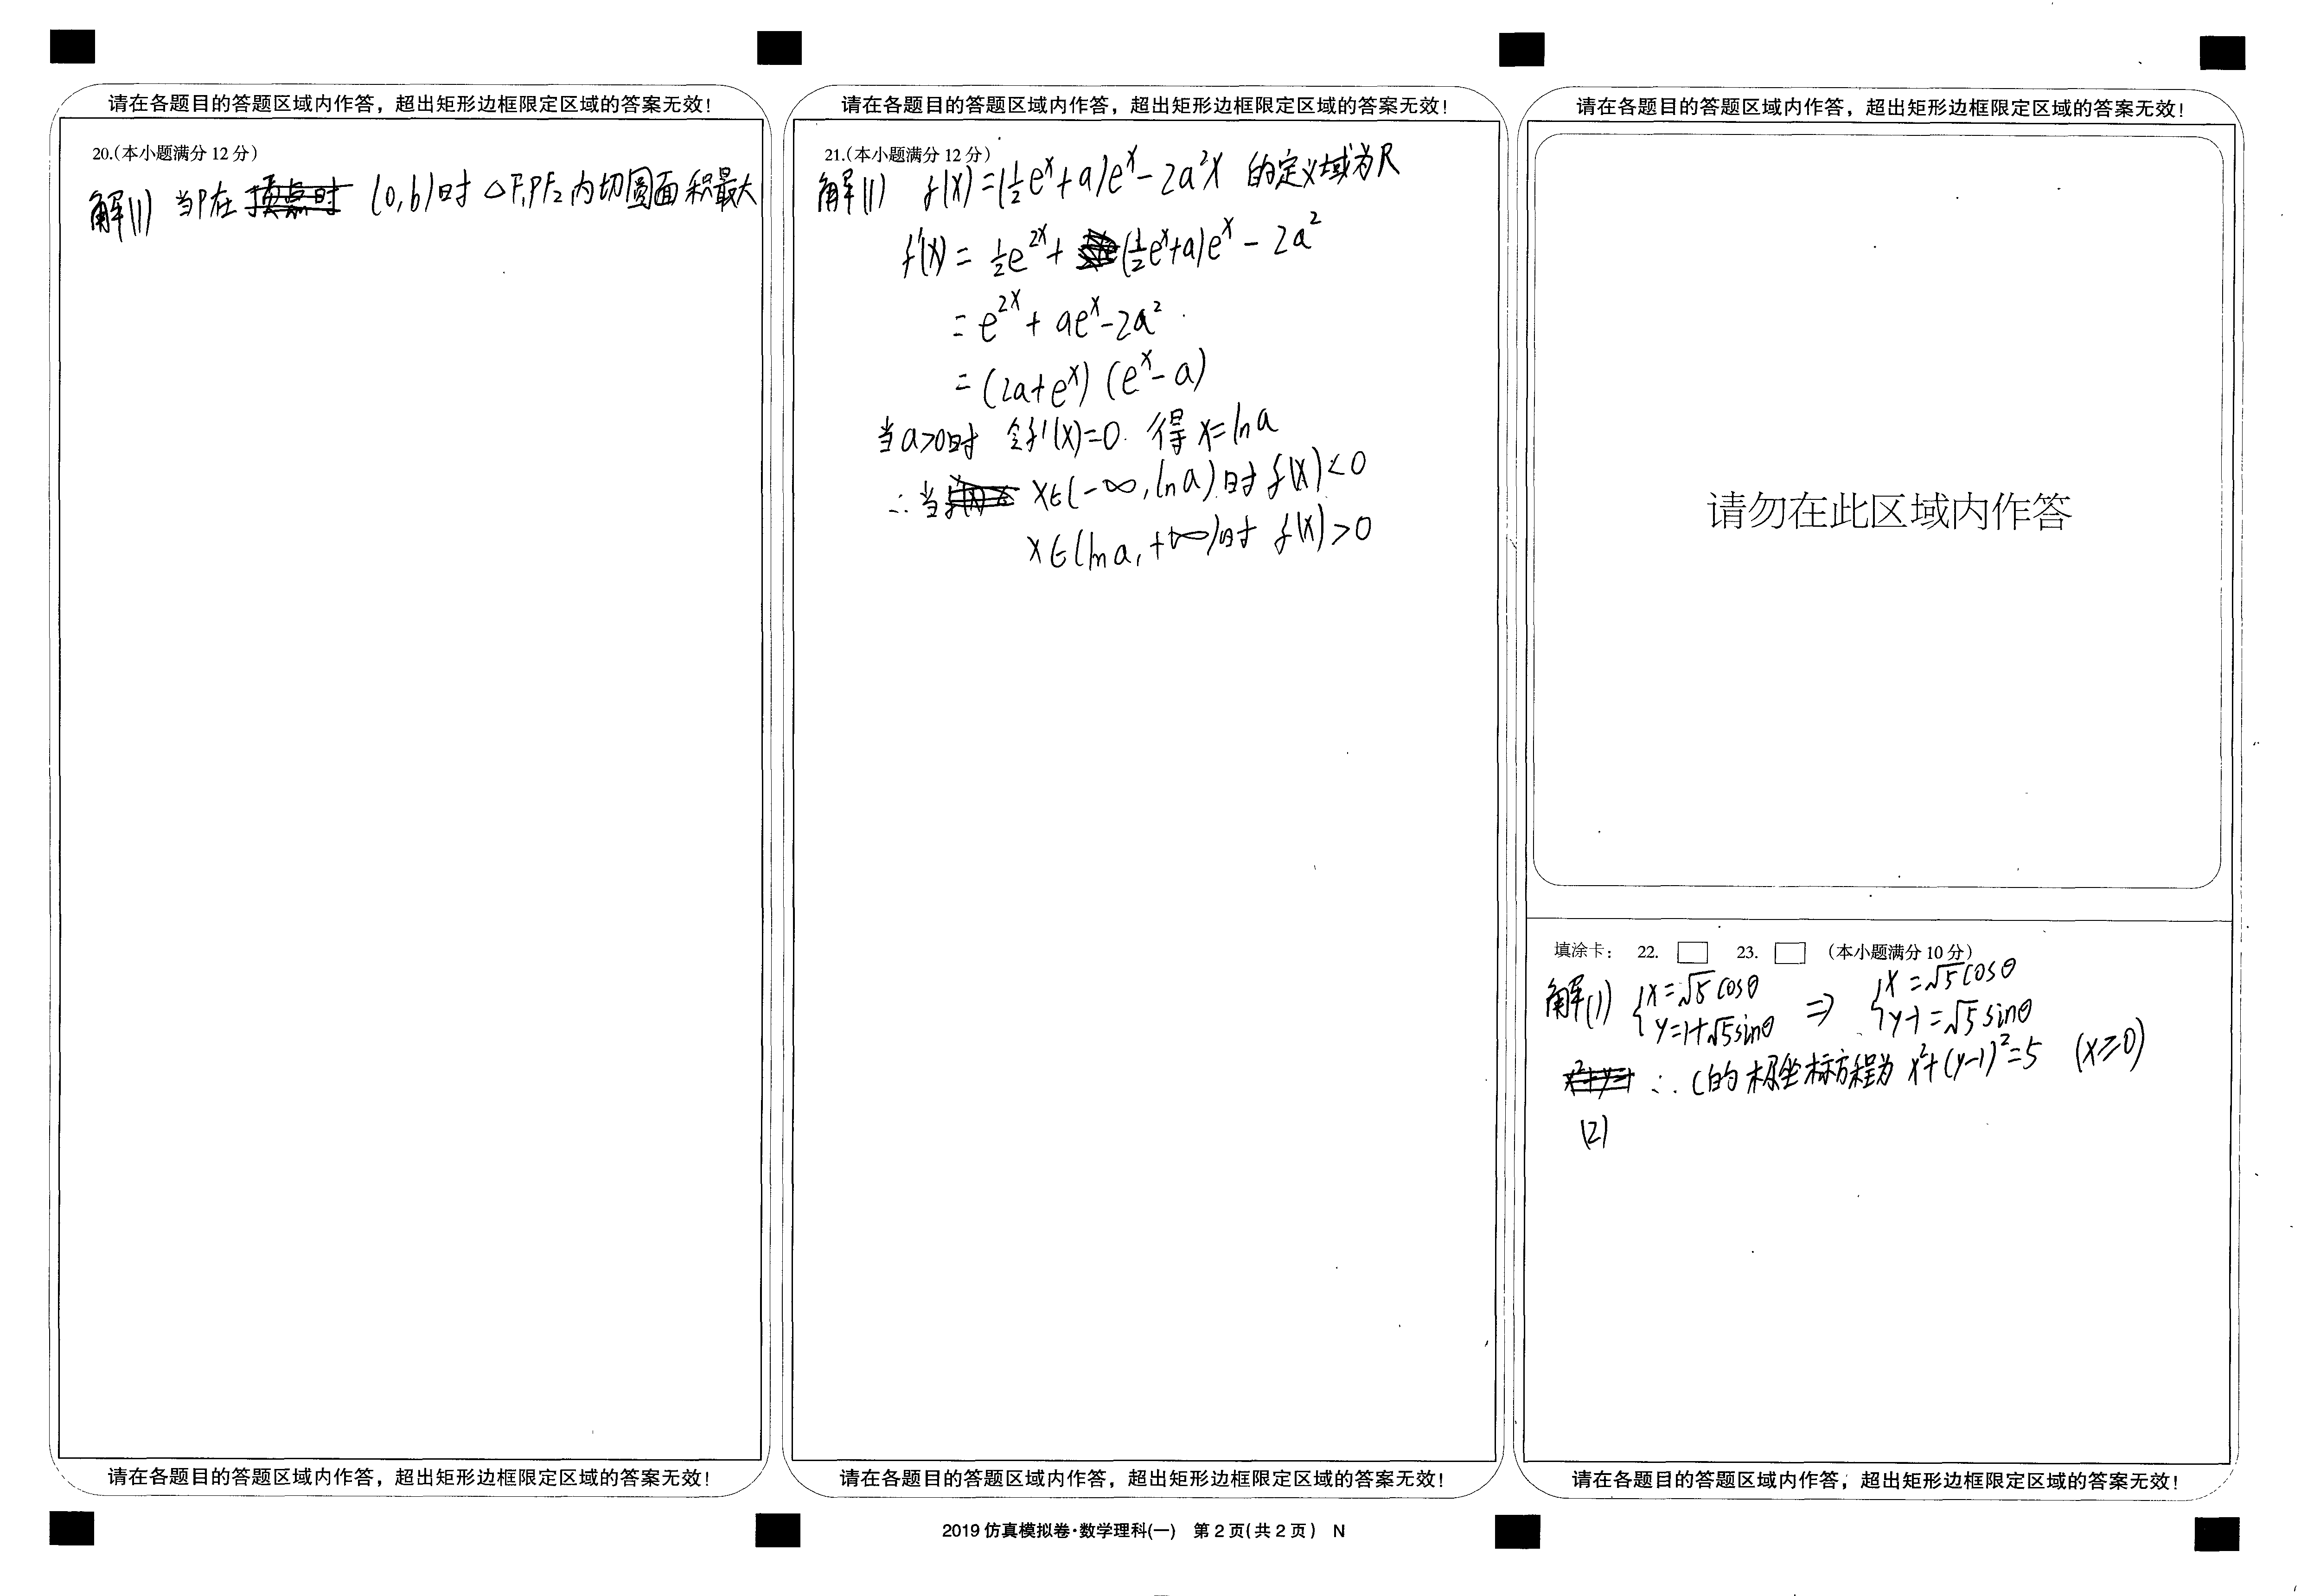 请在各题目的答题区域内作答，超出矩形边框限定区域的答案无效！
20.（本小题满分 12 分）
解(1) 当P在 (0,b)时 △F₁PF₂内切圆面积最大
请在各题目的答题区域内作答，超出矩形边框限定区域的答案无效！
请在各题目的答题区域内作答，超出矩形边框限定区域的答案无效！
21.（本小题满分 12 分）
解(1) f(x)=(½eˣ+a)eˣ-2a²x 的定义域为R
f'(x)=½e²ˣ+(½eˣ+a)eˣ-2a²
=e²ˣ+aeˣ-2a²
=(2a+eˣ)(eˣ-a)
当a>0时 令f'(x)=0 得x=lna
∴当 x∈(-∞,lna)时f(x)<0
x∈(lna,+∞)时 f(x)>0
请在各题目的答题区域内作答，超出矩形边框限定区域的答案无效！
2019 仿真模拟卷·数学理科(一) 第 2 页(共 2 页) N
请在各题目的答题区域内作答，超出矩形边框限定区域的答案无效！
请勿在此区域内作答
填涂卡： 22. 23. （本小题满分 10 分）
解(1) {x=√5cosθ ⇒ {x=√5cosθ
y=1+√5sinθ y-1=√5sinθ
∴C的极坐标方程为 x²+(y-1)²=5 (x≥0)
(2)
请在各题目的答题区域内作答，超出矩形边框限定区域的答案无效！